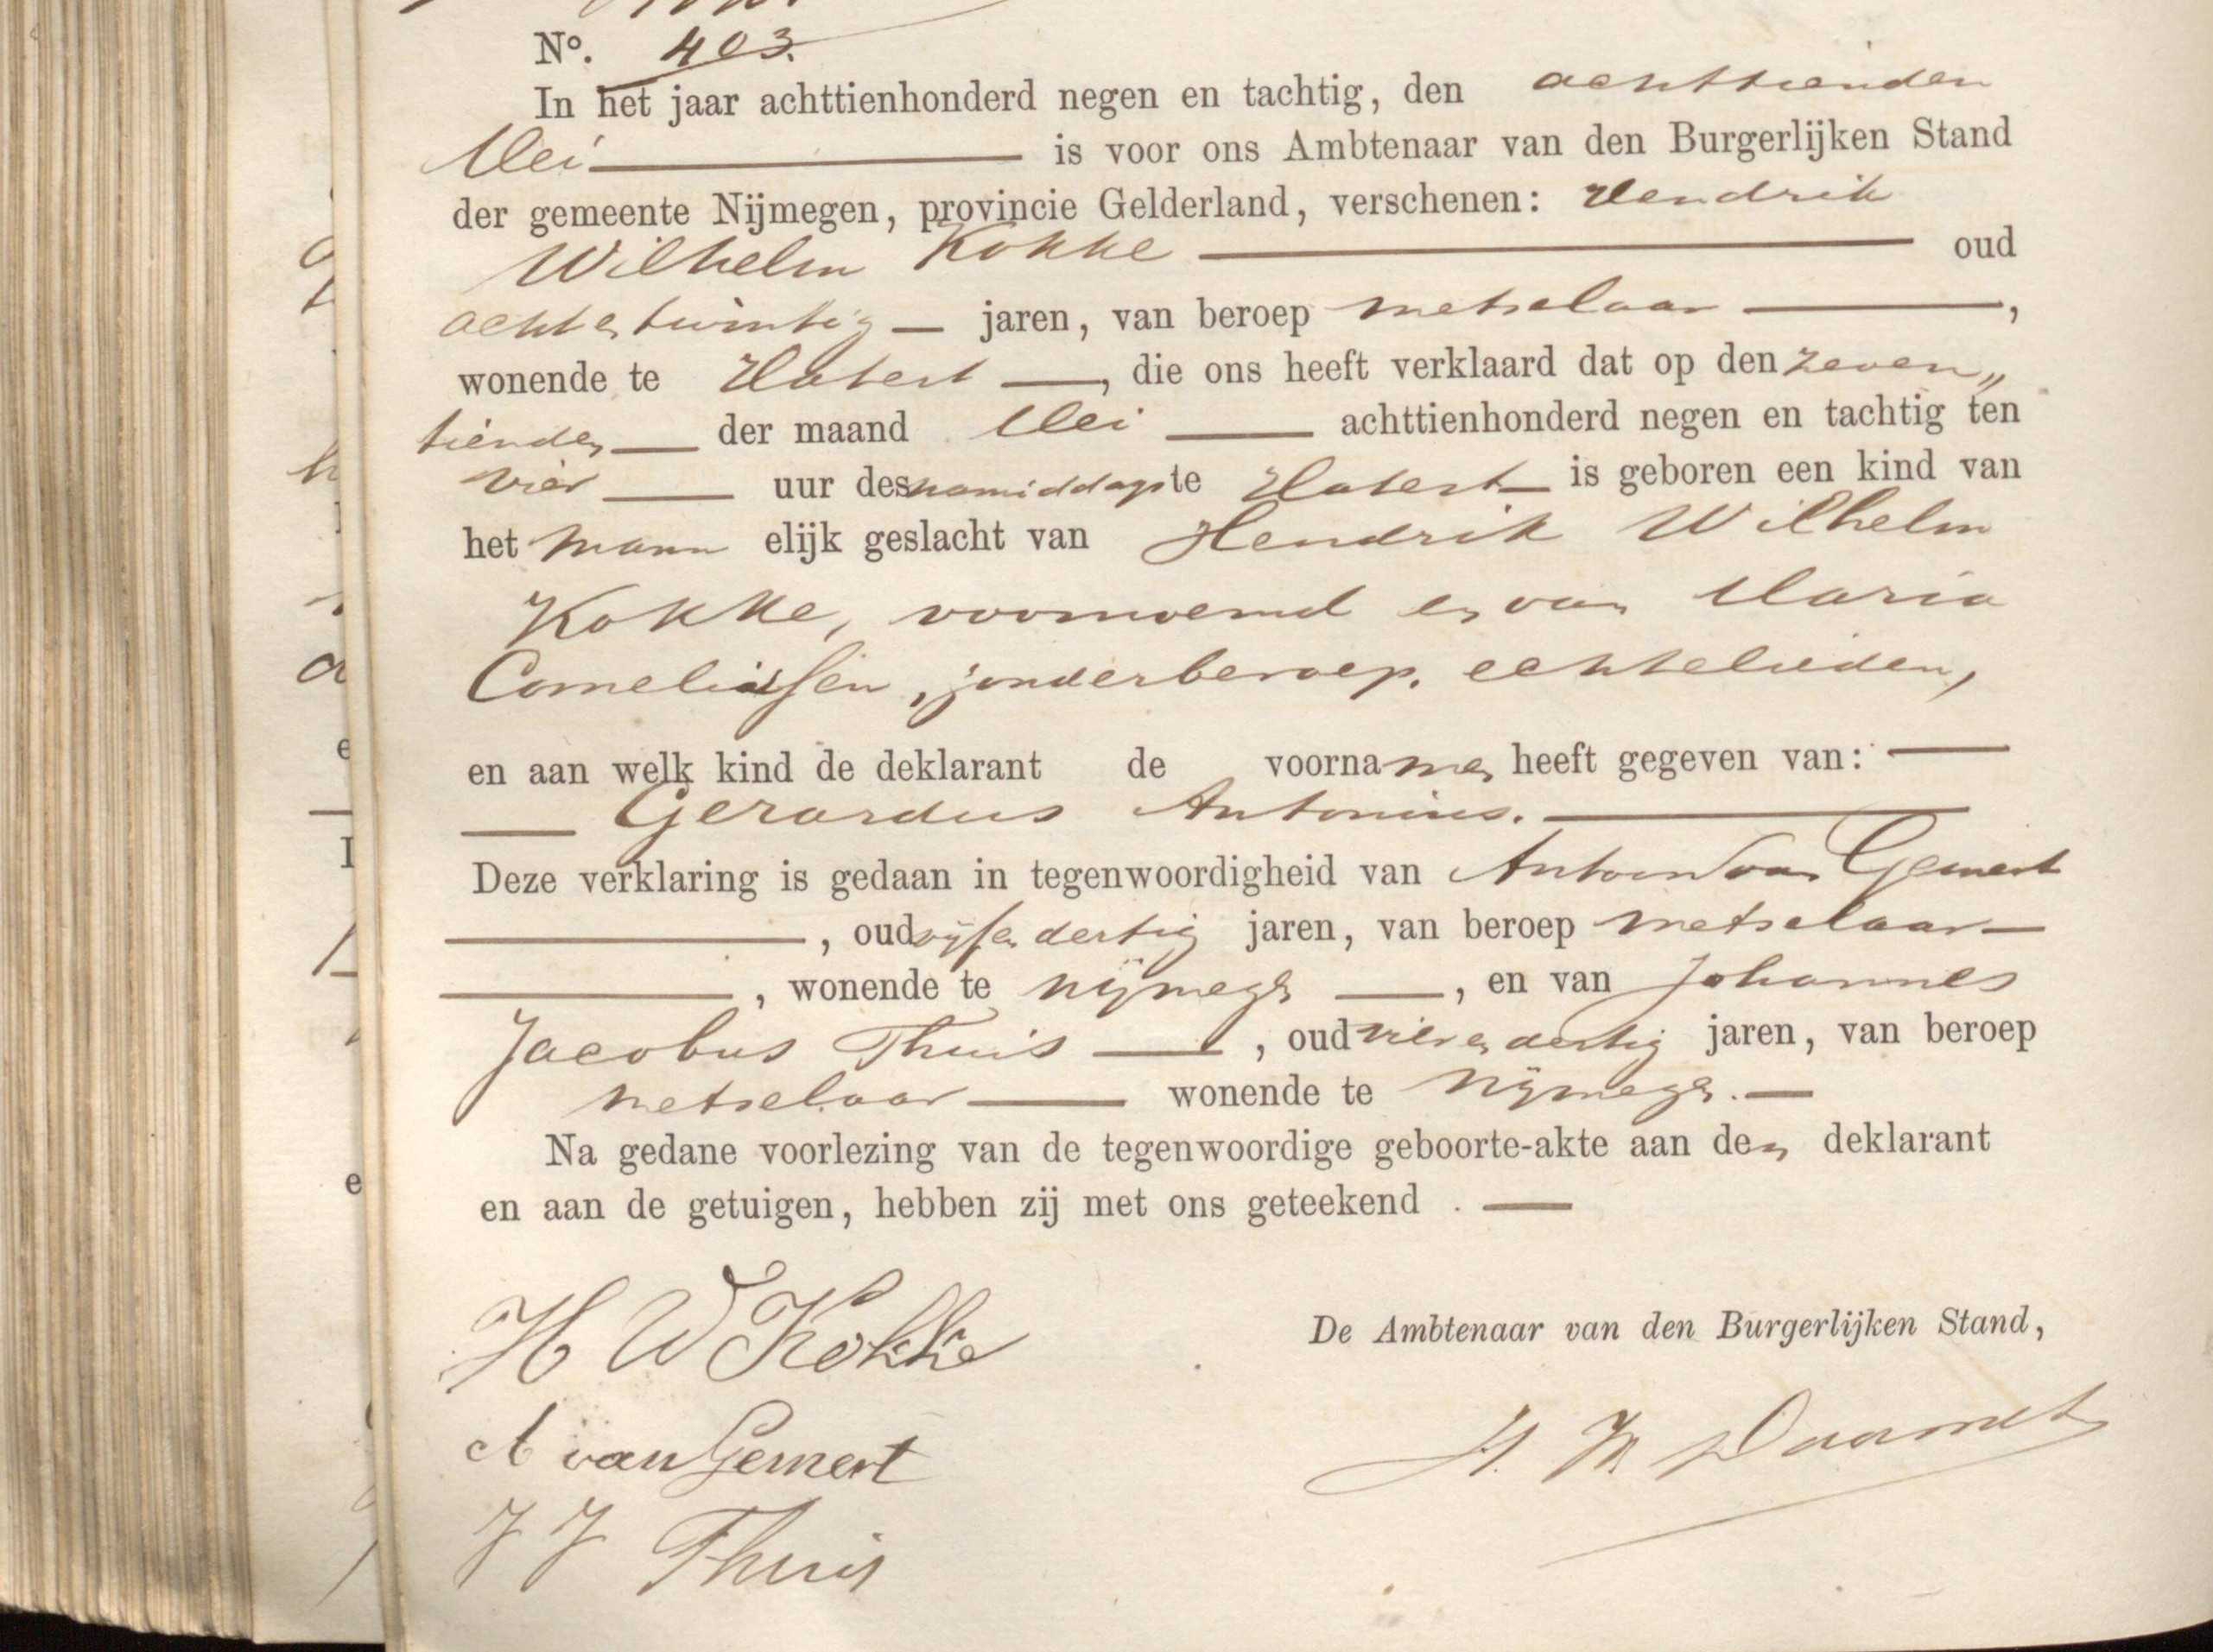 No. 403.
In het jaar achttienhonderd negen en tachtig, den achttienden
Mei is voor ons Ambtenaar van den Burgerlijken Stand
der gemeente Nijmegen, provincie Gelderland, verschenen: Hendrik
Wilhelm Kokke oud
achtentwintig jaren, van beroep metselaar,
wonende te Hatert, die ons heeft verklaard dat op den zeven„
tienden der maand Mei achttienhonderd negen en tachtig ten
vier uur des namiddags te Hatert is geboren een kind van
het mann elijk geslacht van Hendrik Wilhelm
Kokke, voornoemd en van Maria
Cornelissen, zonder beroep, echtelieden,
en aan welk kind de deklarant de voornamen heeft gegeven van:
Gerardus Antonius.
Deze verklaring is gedaan in tegenwoordigheid van Antoon van Gemert
, oud vijfendertig jaren, van beroep metselaar
, wonende te Nijmegen, en van Johannes
Jacobus Thuis, oud vierendertig jaren, van beroep
metselaar wonende te Nijmegen.
Na gedane voorlezing van de tegenwoordige geboorte-akte aan den deklarant
en aan de getuigen, hebben zij met ons geteekend.
H W Kokke
De Ambtenaar van den Burgerlijken Stand,
A van Gemert
J J Thuis